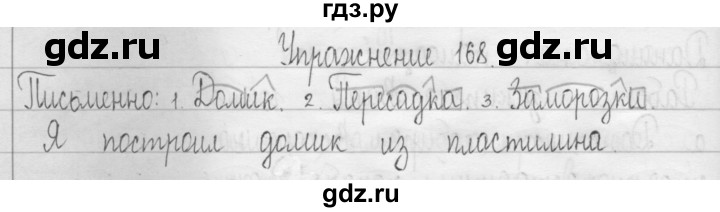 гдз.ру
gdz.ru gdz.ru
Упражнение 168.
Письменно: 1. Домик. 2. Пересадка. 3. Заморозки
Я построил домик из пластилина
gdz.ru gdz.ru
gdz.ru